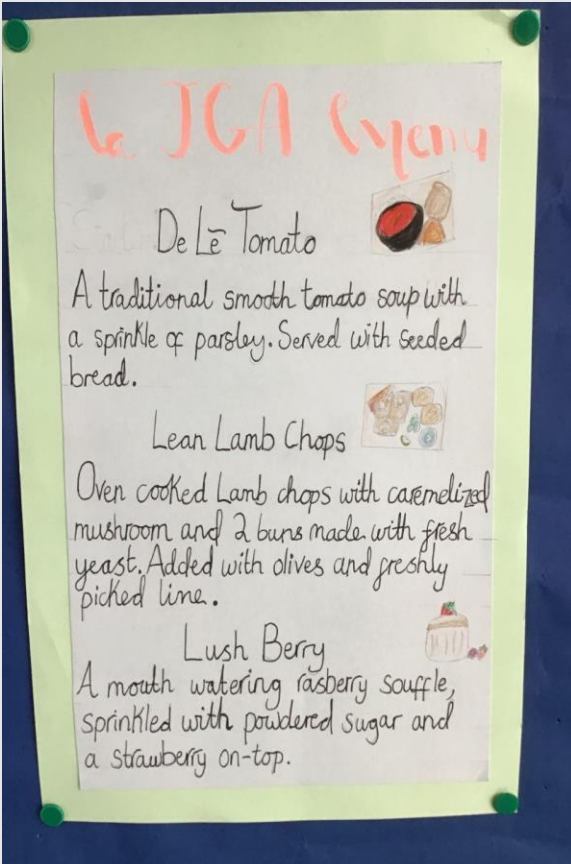 La JGA Menu
De Lē Tomato
A traditional smooth tomato soup with
a sprinkle of parsley. Served with seeded
bread.
Lean Lamb Chops
Oven cooked Lamb chops with caremelized
mushroom and 2 buns made with fresh
yeast. Added with olives and freshly
picked lime.
Lush Berry
A mouth watering rasberry souffle,
sprinkled with powdered sugar and
a strawberry on-top.